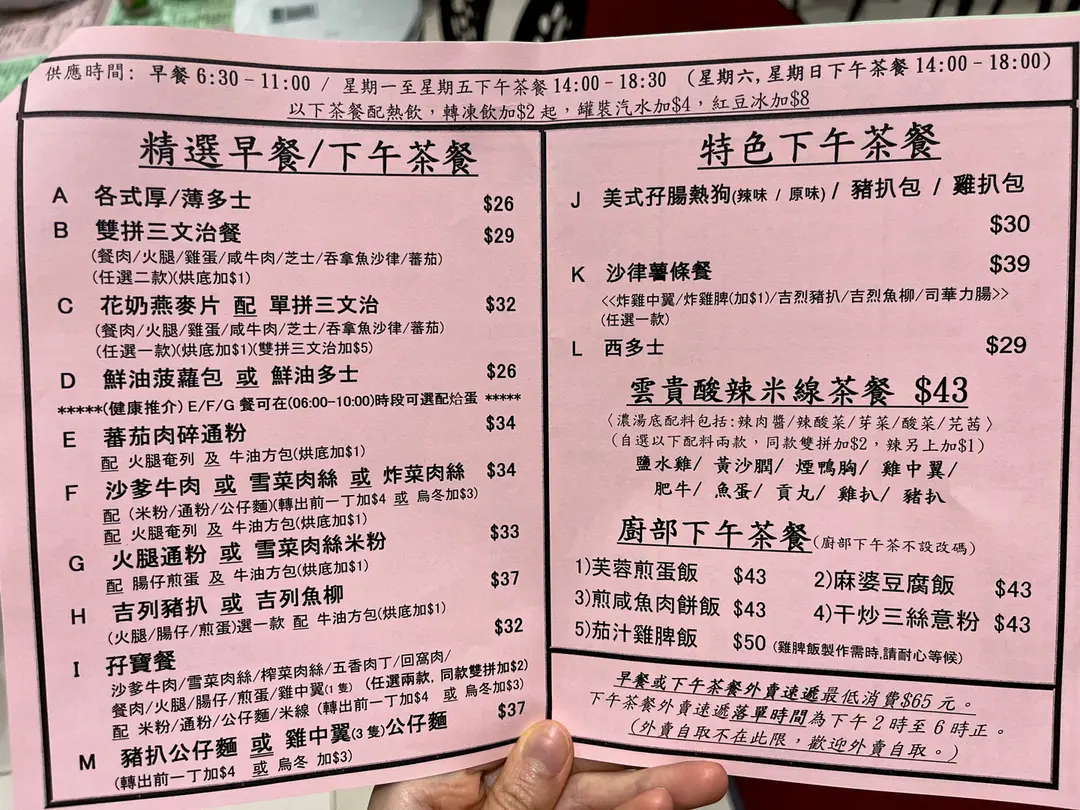 供應時間: 早餐 6:30-11:00 / 星期一至星期五下午茶餐 14:00-18:30 (星期六,星期日下午茶餐 14:00-18:00)
以下茶餐配熱飲，轉凍飲加$2起，罐裝汽水加$4，紅豆冰加$8
精選早餐/下午茶餐
A 各式厚/薄多士 $26
B 雙拼三文治餐 $29
(餐肉/火腿/雞蛋/咸牛肉/芝士/吞拿魚沙律/蕃茄)
(任選二款)(烘底加$1)
C 花奶燕麥片 配 單拼三文治 $32
(餐肉/火腿/雞蛋/咸牛肉/芝士/吞拿魚沙律/蕃茄)
(任選一款)(烘底加$1)(雙拼三文治加$5)
D 鮮油菠蘿包 或 鮮油多士 $26
*****(健康推介) E/F/G 餐可在(06:00-10:00)時段可選配烚蛋 *****
E 蕃茄肉碎通粉 $34
配 火腿奄列 及 牛油方包(烘底加$1)
F 沙爹牛肉 或 雪菜肉絲 或 炸菜肉絲 $34
配 (米粉/通粉/公仔麵)(轉出前一丁加$4 或 烏冬加$3)
配 火腿奄列 及 牛油方包(烘底加$1)
G 火腿通粉 或 雪菜肉絲米粉 $33
配 腸仔煎蛋 及 牛油方包(烘底加$1)
H 吉列豬扒 或 吉列魚柳 $37
(火腿/腸仔/煎蛋)選一款 配 牛油方包(烘底加$1)
I 孖寶餐 $32
沙爹牛肉/雪菜肉絲/榨菜肉絲/五香肉丁/回窩肉/
餐肉/火腿/腸仔/煎蛋/雞中翼(1隻) (任選兩款, 同款雙拼加$2)
配 米粉/通粉/公仔麵/米線 (轉出前一丁加$4 或 烏冬加$3)
M 豬扒公仔麵 或 雞中翼(3隻)公仔麵 $37
(轉出前一丁加$4 或 烏冬 加$3)
特色下午茶餐
J 美式孖腸熱狗(辣味 / 原味) / 豬扒包 / 雞扒包
$30
K 沙律薯條餐 $39
<<炸雞中翼/炸雞脾(加$1)/吉烈豬扒/吉烈魚柳/司華力腸>>
(任選一款)
L 西多士 $29
雲貴酸辣米線茶餐 $43
〈濃湯底配料包括:辣肉醬/辣酸菜/芽菜/酸菜/芫茜〉
(自選以下配料兩款，同款雙拼加$2，辣另上加$1)
鹽水雞/ 黃沙膶/ 煙鴨胸/ 雞中翼/
肥牛/ 魚蛋/ 貢丸/ 雞扒/ 豬扒
廚部下午茶餐(廚部下午茶不設改碼)
1)芙蓉煎蛋飯 $43 2)麻婆豆腐飯 $43
3)煎咸魚肉餅飯 $43 4)干炒三絲意粉 $43
5)茄汁雞脾飯 $50 (雞脾飯製作需時,請耐心等候)
早餐或下午茶餐外賣速遞最低消費$65元。
下午茶餐外賣速遞落單時間為下午2時至6時正。
(外賣自取不在此限，歡迎外賣自取。)